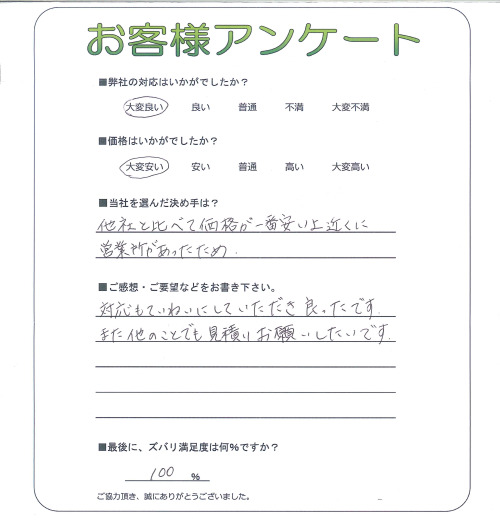 お客様アンケート
■弊社の対応はいかがでしたか？
大変良い 良い 普通 不満 大変不満
■価格はいかがでしたか？
大変安い 安い 普通 高い 大変高い
■当社を選んだ決め手は？
他社と比べて価格が一番安い上近くに
営業所があったため.
■ご感想・ご要望などをお書き下さい。
対応もていねいにしていただき良ったです.
また他のことでも見積りお願いしたいです.
■最後に、ズバリ満足度は何％ですか？
100 ％
ご協力頂き、誠にありがとうございました。